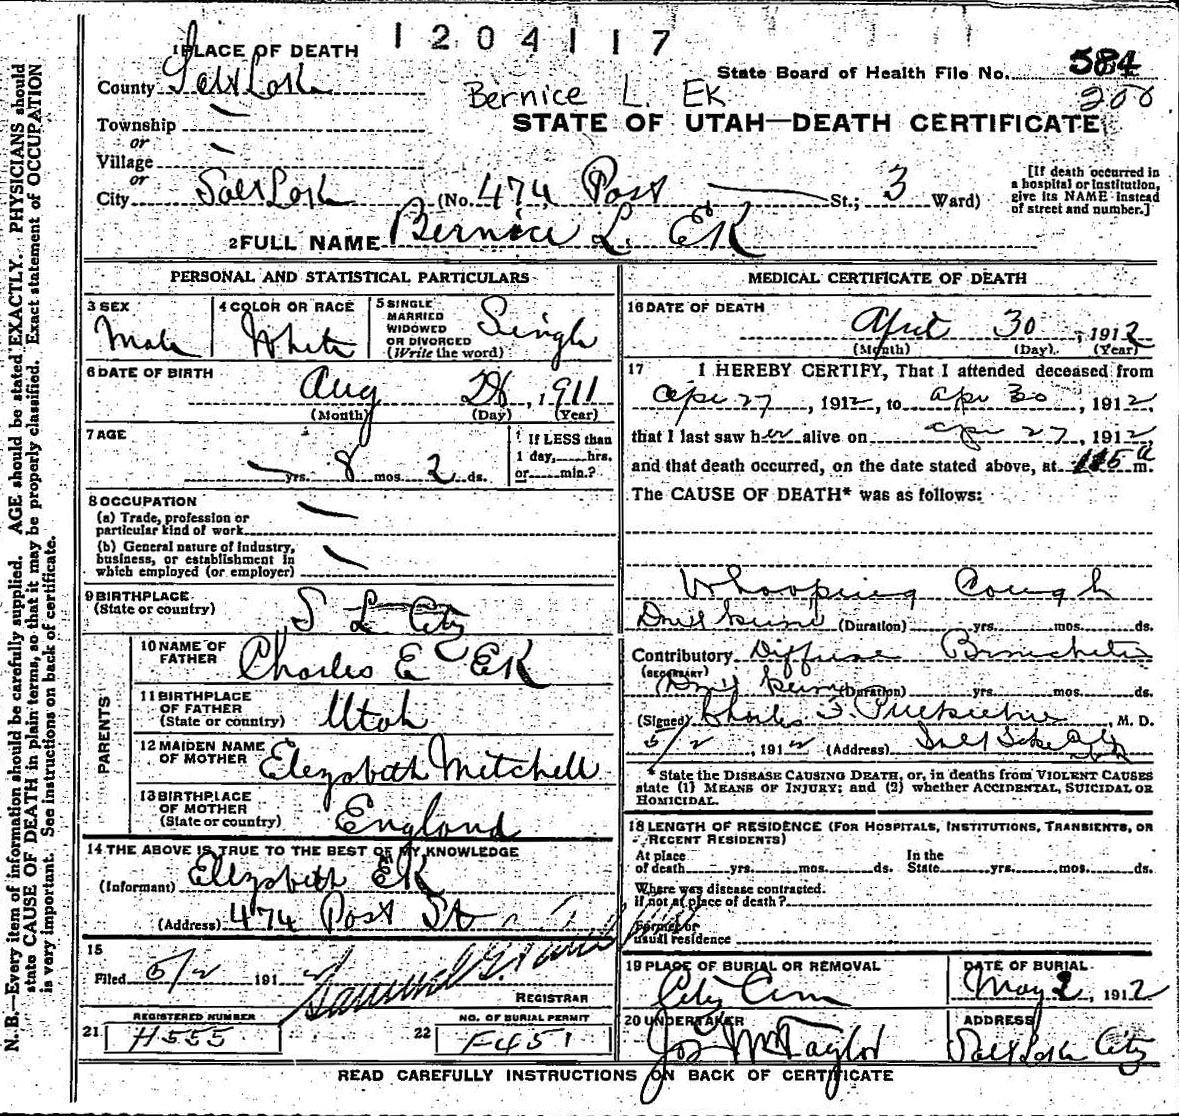 1204117
1 PLACE OF DEATH
State Board of Health File No. 584
County Salt Lake
Bernice L. EK
200
STATE OF UTAH—DEATH CERTIFICATE
Township
or
Village
or
City Salt Lake (No. 474 Post St.; 3 Ward)
[If death occurred in
a hospital or institution,
give its NAME instead
of street and number.]
2 FULL NAME Bernice L. EK
PERSONAL AND STATISTICAL PARTICULARS
3 SEX
Male
4 COLOR OR RACE
White
5 SINGLE
MARRIED
WIDOWED
OR DIVORCED
(Write the word)
Single
6 DATE OF BIRTH
Aug 28, 1911
(Month) (Day) (Year)
7 AGE
yrs. 8 mos. 2 ds.
If LESS than
1 day, hrs.
or min.?
8 OCCUPATION
(a) Trade, profession or
particular kind of work
(b) General nature of industry,
business, or establishment in
which employed (or employer)
9 BIRTHPLACE
(State or country)
S L City
PARENTS
10 NAME OF
FATHER
Charles E EK
11 BIRTHPLACE
OF FATHER
(State or country)
Utah
12 MAIDEN NAME
OF MOTHER
Elezabeth Mitchell
13 BIRTHPLACE
OF MOTHER
(State or country)
England
14 THE ABOVE IS TRUE TO THE BEST OF MY KNOWLEDGE
(Informant) Elezabeth EK
(Address) 474 Post St
15
Filed 5/2 191
REGISTRAR
REGISTERED NUMBER
21 H555
NO. OF BURIAL PERMIT
22 F451
MEDICAL CERTIFICATE OF DEATH
16 DATE OF DEATH
April 30, 1912
(Month) (Day) (Year)
17 I HEREBY CERTIFY, That I attended deceased from
Apr 27, 1912, to Apr 30, 1912,
that I last saw her alive on Apr 27, 1912,
and that death occurred, on the date stated above, at 115 a m.
The CAUSE OF DEATH* was as follows:
Whooping Cough
(Duration) yrs. mos. ds.
Contributory Diffuse Bronchitis
(SECONDARY)
(Duration) yrs. mos. ds.
(Signed) Charles F , M. D.
5/2, 1912 (Address) Salt Lake City
* State the DISEASE CAUSING DEATH, or, in deaths from VIOLENT CAUSES
state (1) MEANS OF INJURY; and (2) whether ACCIDENTAL, SUICIDAL OR
HOMICIDAL.
18 LENGTH OF RESIDENCE (FOR HOSPITALS, INSTITUTIONS, TRANSIENTS, OR
RECENT RESIDENTS)
At place
of death yrs. mos. ds.
In the
State yrs. mos. ds.
Where was disease contracted.
if not at place of death?
Former or
usual residence
19 PLACE OF BURIAL OR REMOVAL
City Cem
DATE OF BURIAL
May 2, 1912
20 UNDERTAKER
Jos Wm Taylor
ADDRESS
Salt Lake City
READ CAREFULLY INSTRUCTIONS ON BACK OF CERTIFICATE
N. B.—Every item of information should be carefully supplied. AGE should be stated EXACTLY. PHYSICIANS should
state CAUSE OF DEATH in plain terms, so that it may be properly classified. Exact statement of OCCUPATION
is very important. See instructions on back of certificate.